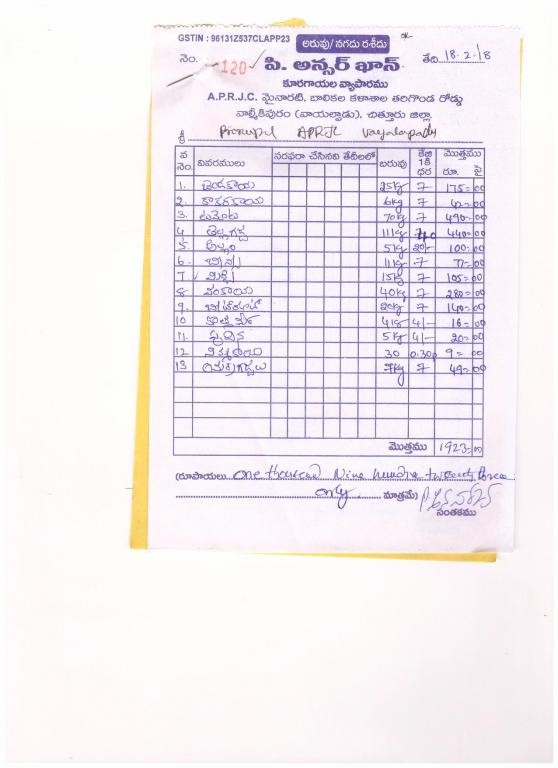 GSTIN : 96131Z537CLAPP23
అరువు/ నగదు రశీదు
నెం. 120 తేది 18-2-18
పి. అన్సర్ ఖాన్
కూరగాయల వ్యాపారము
A.P.R.J.C. మైనారటి, బాలికల కళాశాల తరిగొండ రోడ్డు
వాల్మీకిపురం (వాయల్పాడు), చిత్తూరు జిల్లా.
శ్రీ Principal APRJC Vayalapadu
వ నెం. వివరములు సరఫరా చేసినవి తేదీలలో బరువు కేజి 1కి ధర మొత్తము రూ. పై
1. బెండకాయ 25kg 7 175=00
2. కాకరకాయ 6kg 7 42=00
3. టమోటా 70kg 7 490=00
4 తెల్లగడ్డ 11kg 40 440=00
5. అల్లం 5kg 20/- 100=00
6. బీన్స్ 11kg 7 77=00
7. మిర్చి 15kg 7 105=00
8 వంకాయ 40kg 7 280=00
9. 20kg 7 140=00
10 కొత్తిమీర 4kg 4/- 16=00
11. పుదీన 5kg 4/- 20=00
12 నిమ్మకాయ 30 0.30p 9=00
13 7kg 7 49=00
మొత్తము 1923=00
(రూపాయలు one thousand Nine hundred twenty three
only మాత్రమే)
సంతకము